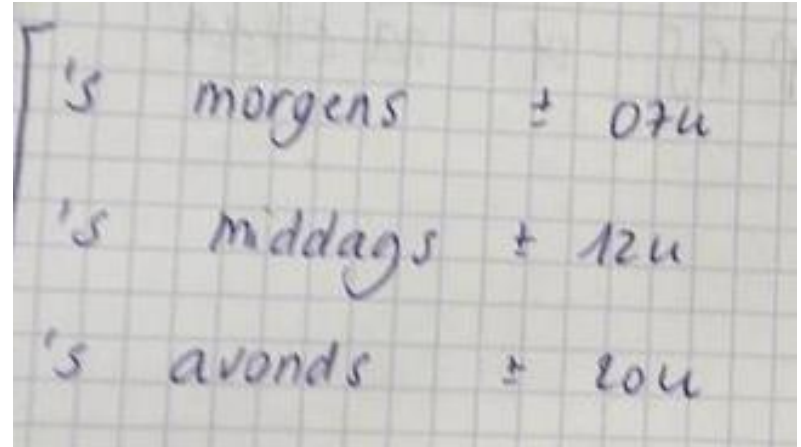 's morgens ± 07u
's middags ± 12u
's avonds ± 20u